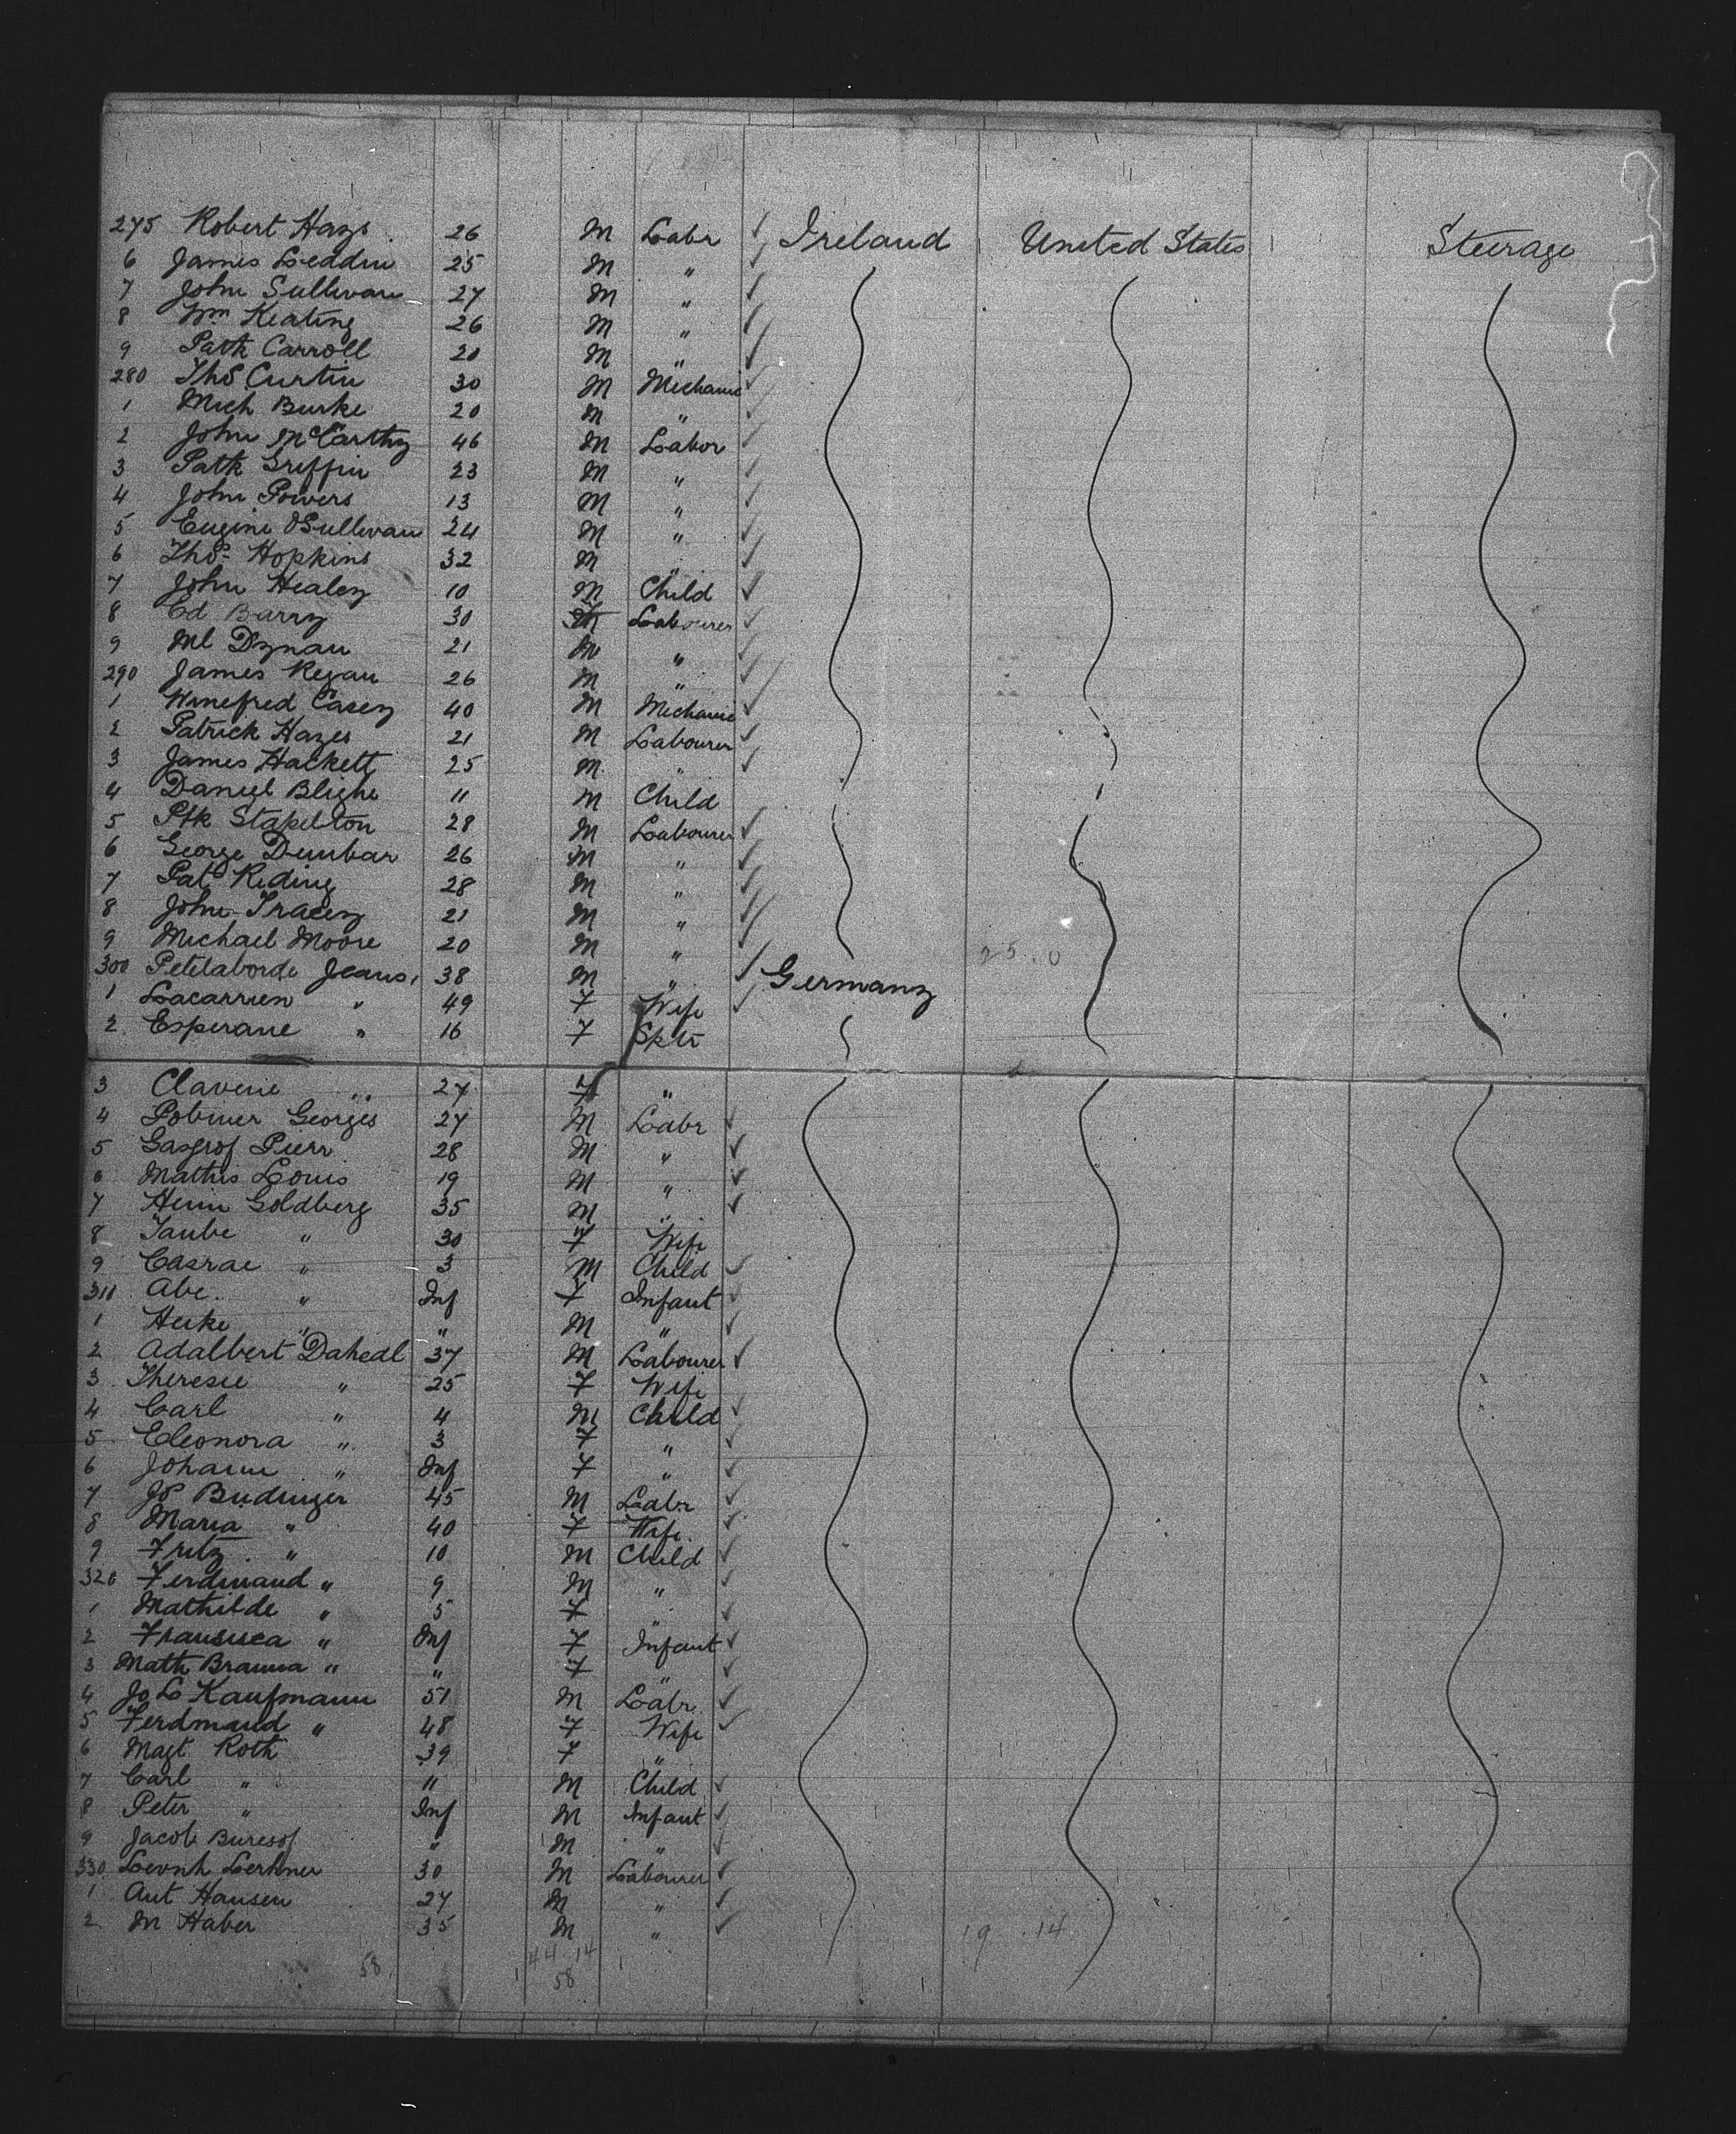 275 Robert Hays 26 M Labr Ireland United States Steerage
6 James Leddin 25 M "
7 John Sullivan 27 M "
8 Wm Keating 26 M "
9 Patk Carroll 20 M "
280 Thos Curtin 30 M Mechanic
1 Mich Burke 20 M "
2 John McCarthy 46 M Labor
3 Patk Griffin 23 M "
4 John Powers 13 M "
5 Eugene OSullivan 24 M "
6 Thos Hopkins 32 M "
7 John Healey 10 M Child
8 Ed Barry 30 M Labourer
9 Ml Dynan 21 M "
290 James Regan 26 M "
1 Winefred Casey 40 M Mechanic
2 Patrick Hayes 21 M Labourer
3 James Hackett 25 M "
4 Daniel Blighe 11 M Child
5 Ptk Stapelton 28 M Labourer
6 George Dunbar 26 M "
7 Pat Reding 28 M "
8 John Tracey 21 M "
9 Michael Moore 20 M " 25 . 0
300 Petelaborde Jeans 38 M " Germany
1 Lacarrien " 49 F Wife
2 Esperane " 16 F Spstr
3 Claverie " 27 F "
4 Georges 27 M Labr
5 Pierr 28 M "
6 Mathis Louis 19 M "
7 Heim Goldberg 35 M "
8 Taube " 30 F Wife
9 Casrae " 3 M Child
311 Abe " Inf F Infant
1 Heike " " M "
2 Adalbert Dahedl 37 M Labourer
3 Theresie " 25 F Wife
4 Carl " 4 M Child
5 Eleonora " 3 F "
6 Johann " Inf F "
7 Jos Budinger 45 M Labr
8 Maria " 40 F Wife
9 Fritz " 10 M Child
320 Ferdinand " 9 M "
1 Mathilde " 5 F "
2 Fransisca " Inf F Infant
3 Math Brauna " " F "
4 Jo L Kaufmann 51 M Labr
5 Ferdinand " 48 F Wife
6 Magt Roth 39 F "
7 Carl " " M Child
8 Peter " Inf M Infant
9 Jacob Buresof " M "
330 Lerhner 30 M Labourer
1 Ant Hansen 27 M "
2 M Haber 35 M " 19 . 14
58 44 14
58